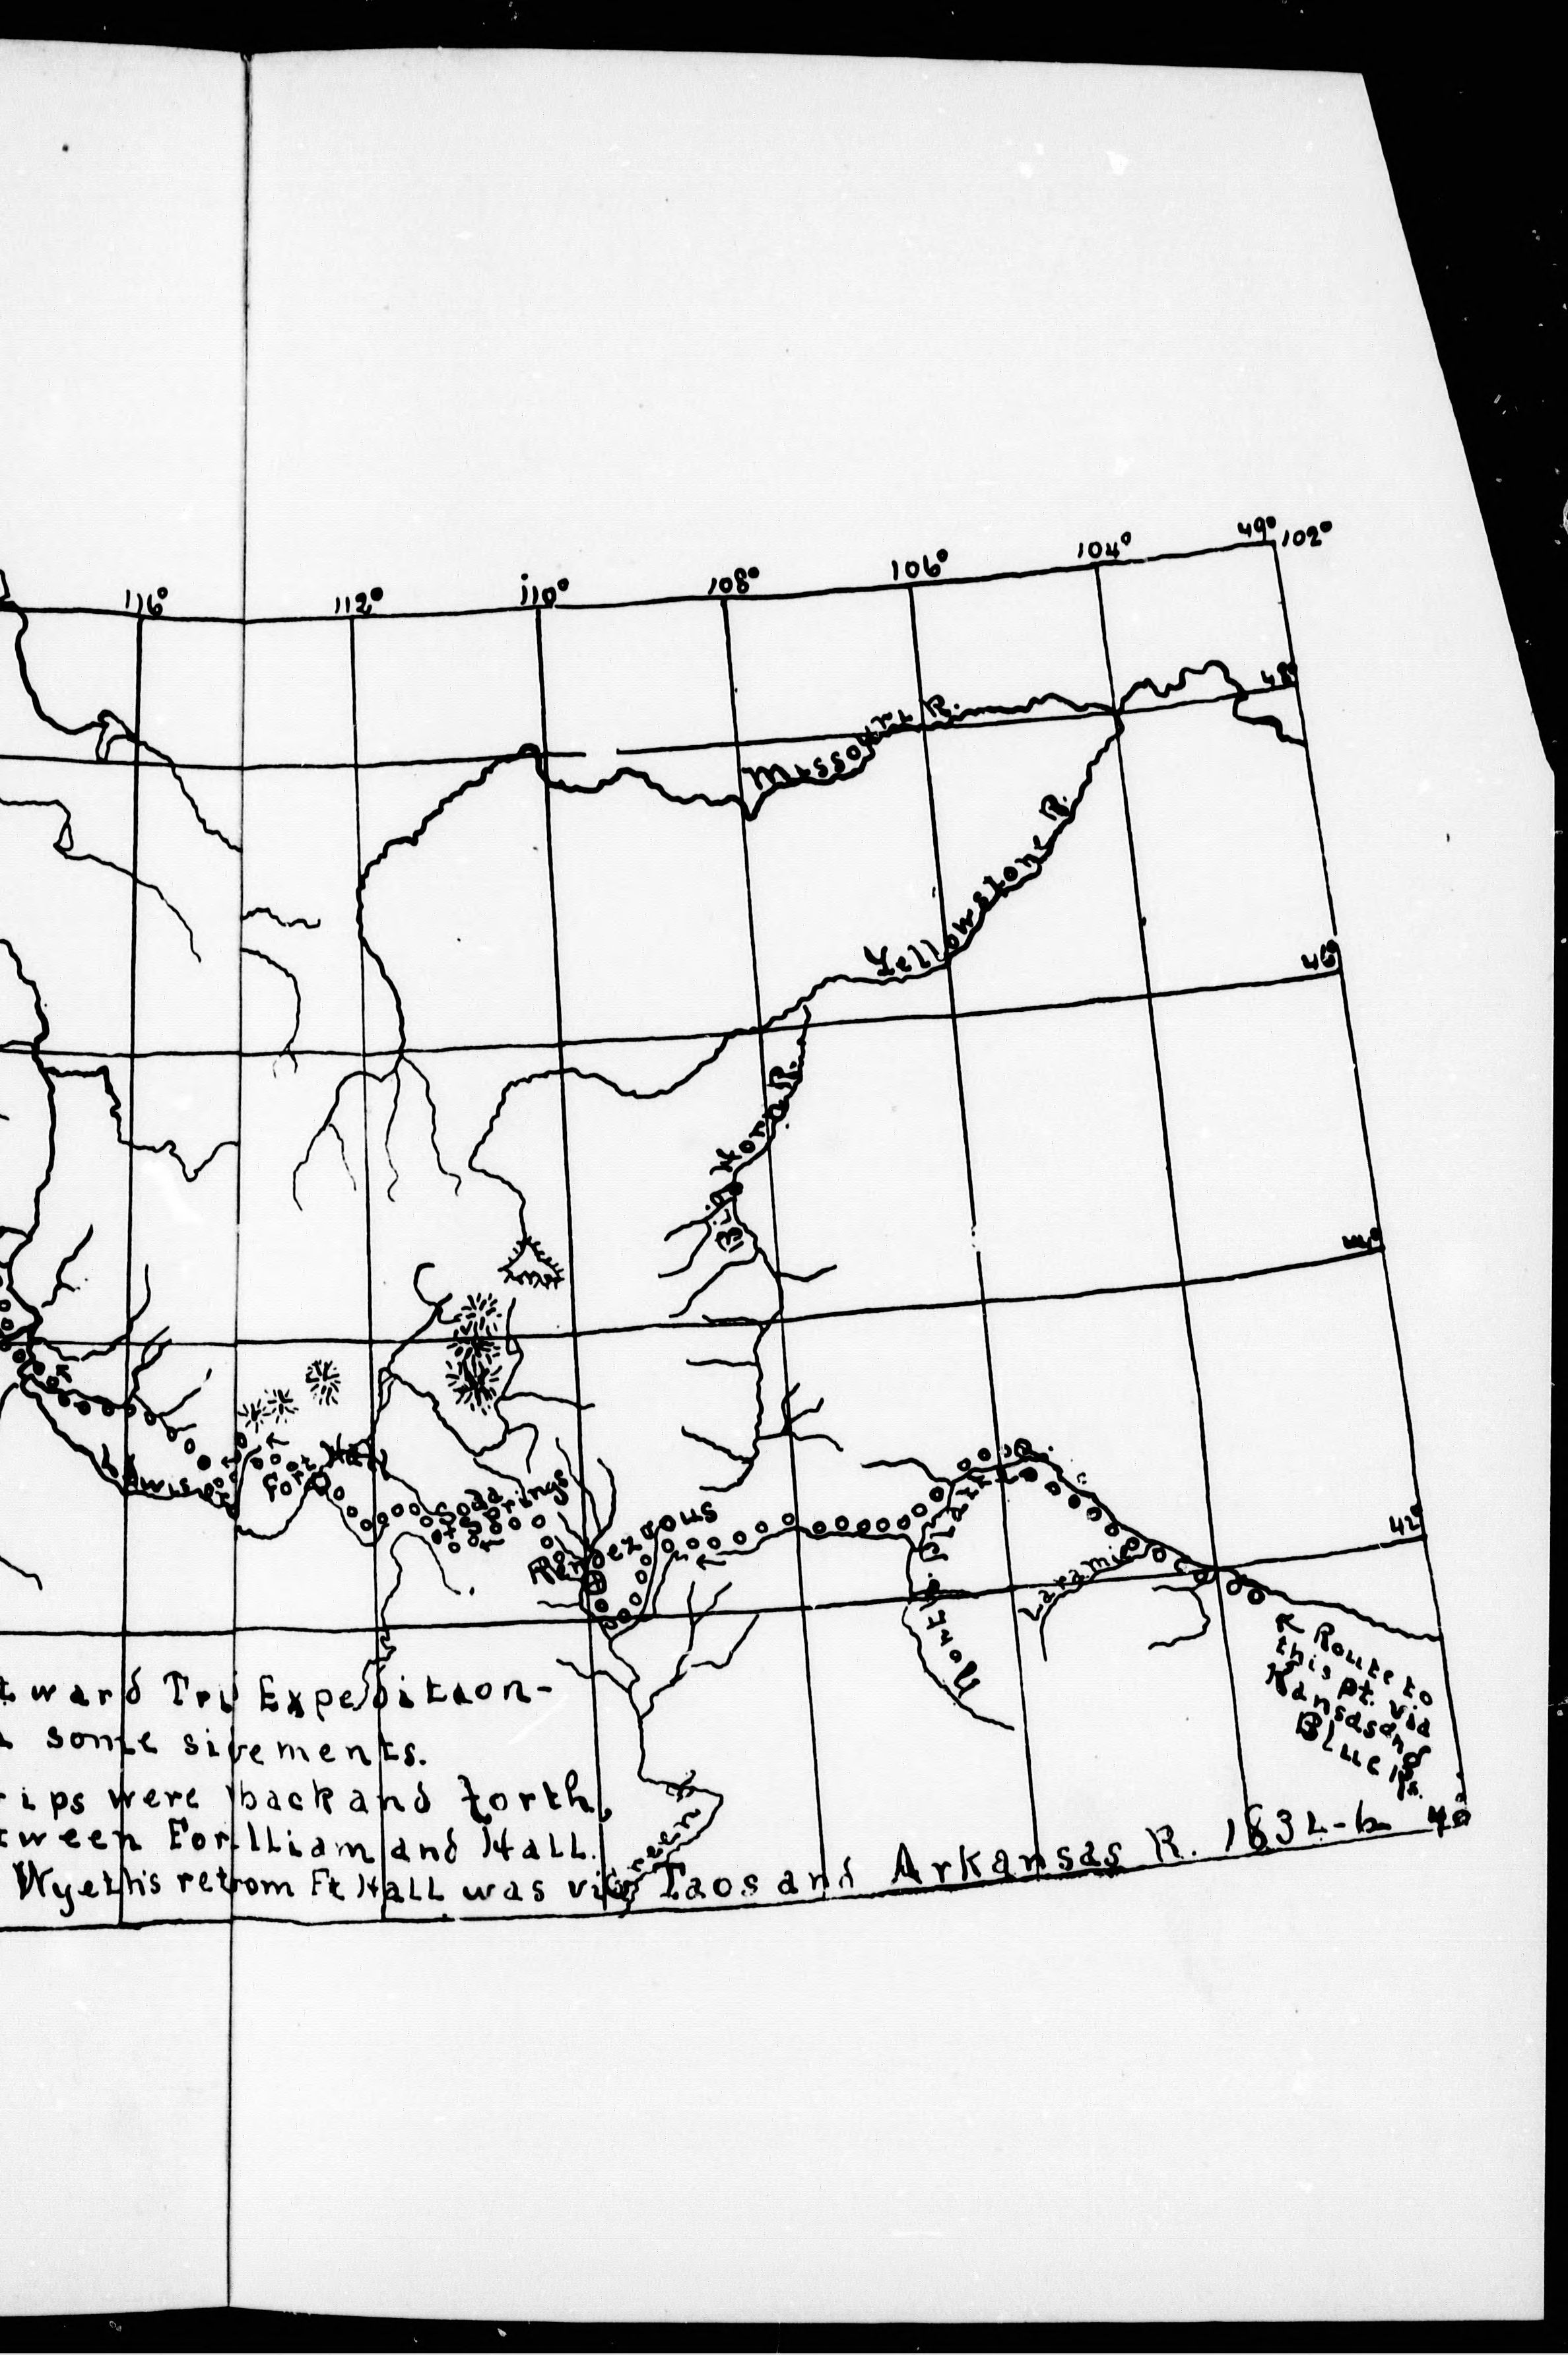 116° 112° 110° 108° 106° 104° 49° 102°
48°
Missouri R.
Yellowstone R.
46°
Horn R.
Big
44°
Lewis
Fort Hall
Soda Springs
Rendezvous
Platte R.
North
Laramie
42°
Route to
this pt. via
Kansas and
Blue Rs.
tward Tri Expedition-
some si vements.
rips were back and forth
tween For lliam and Hall.
Wyeth's ret rom Ft Hall was via Taos and Arkansas R. 1832-6
Green
40